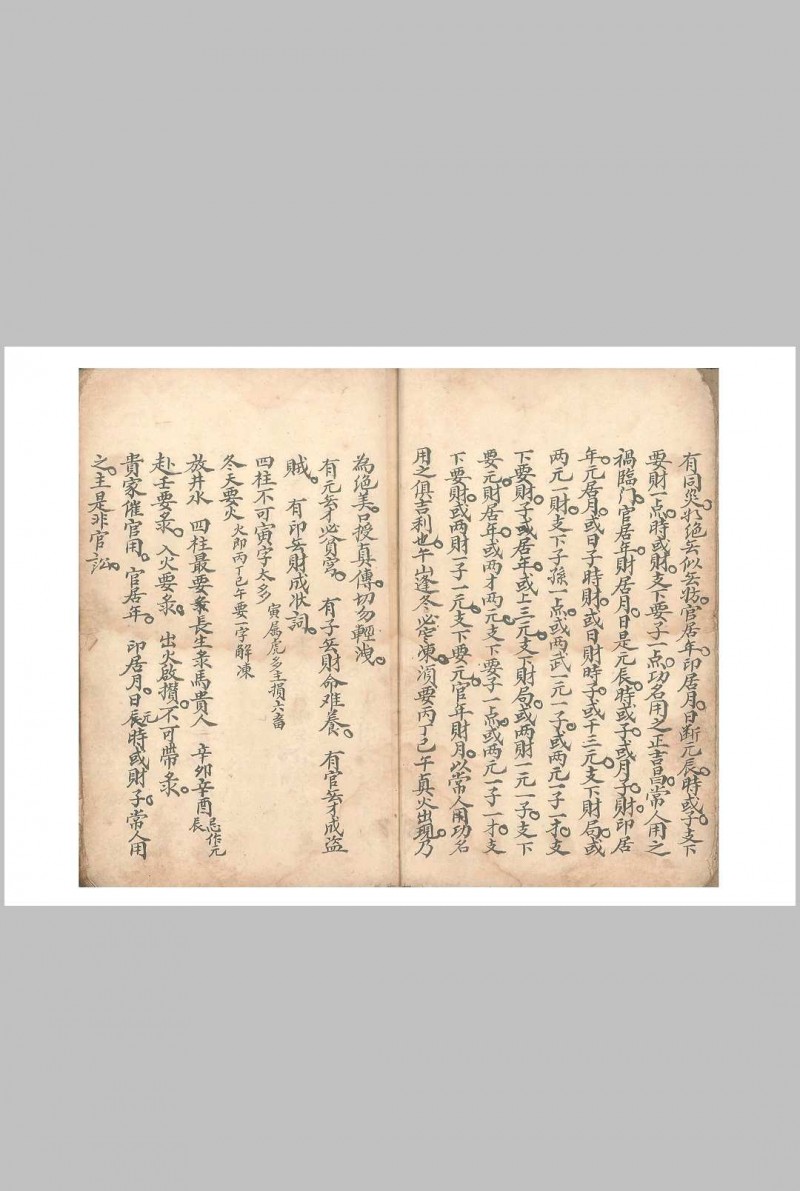 有同災於絕去似去妨。官居年。印居月。日斷元辰。時或子支下
要財一点。時或財。支下要子一点。功名用之正吉昌。常人用之
禍臨門。官居年。財居月。日是元辰。時或子。或月子。財印居
年。元居月。或日子時財。或日財時子。或干三元。支下財局。或
两元一財支下子孫一点。或两武一元一子。或两元一子一才。支
下要財。子或居年。或上三元。支下財局。或两財一元一子。支下
要元。財居年。或两才两元。支下要子一点。或两元一子一才支
下要財。或两財一子一元。支下要元。官年財月。以常人用功名
用之俱吉利也。午山逢冬必寒凍。須要丙丁巳午真火出現。乃
為絕美。口授真傳。切勿輕洩。
有元無才必貧窮。 有子無財命难養。 有官無才成盜
賊。 有印無財成狀詞。
四柱不可寅字太多 寅属虎多主損六畜
冬天要火 火即丙丁巳午要一字解凍
放井水 四柱最要彔長生彔馬貴人 辛卯辛酉忌作元辰
赴壬要彔。入火要彔。 出火啟攢。不可帶彔。
貴家催官用。官居年。 印居月。日元辰。時或財子。常人用
之主是非官訟。